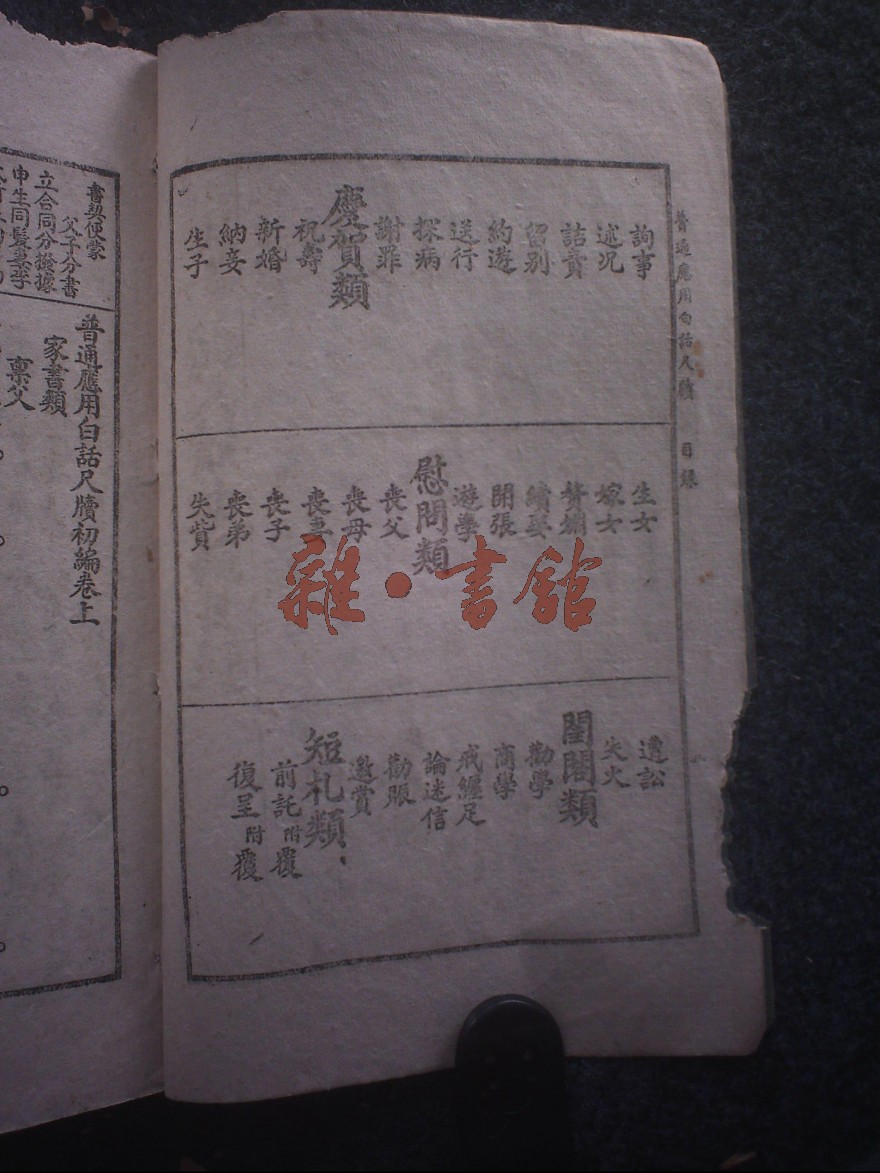 普通應用白話尺牘　目錄
詢事
述况
詰責
留別
約遊
送行
探病
謝罪
慶賀類
祝壽
新婚
納妾
生子
生女
嫁女
贅婿
續娶
開張
遊學
慰問類
喪父
喪母
喪妻
喪子
喪弟
失貲
遭訟
失火
閨閣類
勸學
商學
戒纏足
論迷信
勸賑
邀賞
短札類
前託 附覆
復呈 附覆
書契便蒙
父子分書
立合同分撥據
申生同髮妻李
普通應用白話尺牘初編卷上
家書類
禀父
雜·書館